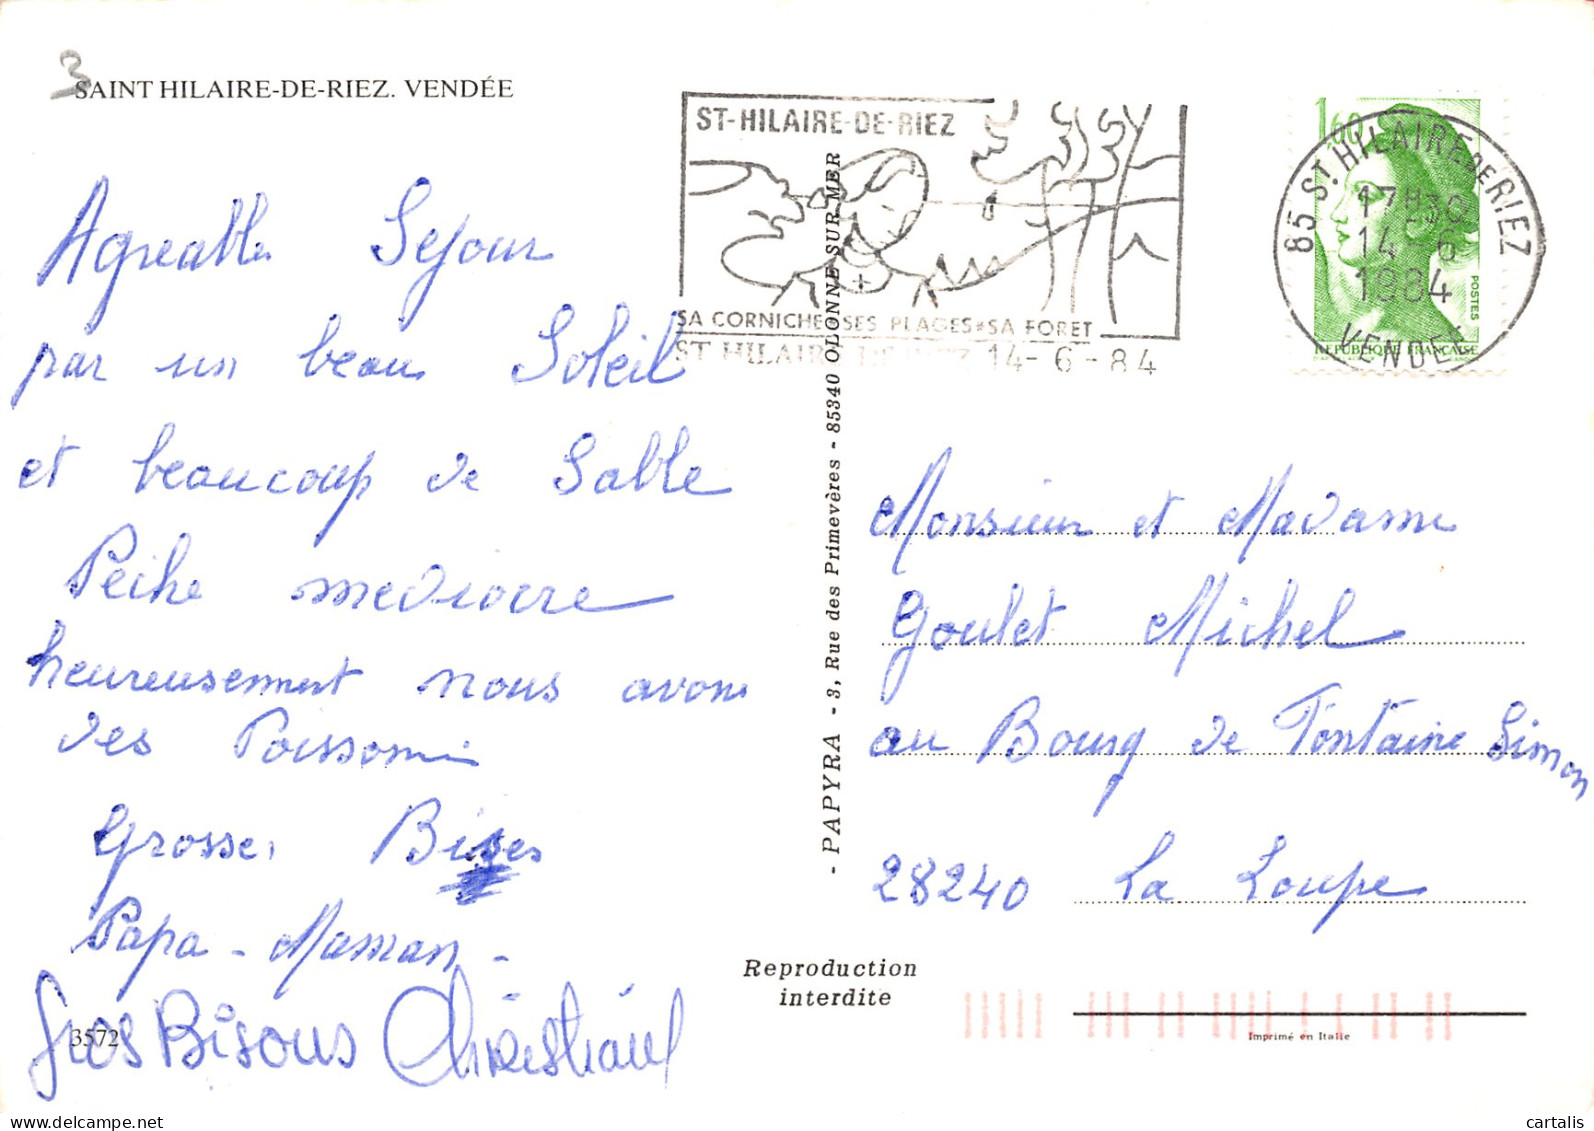 3
SAINT HILAIRE-DE-RIEZ. VENDÉE
Agreable Sejour
par un beau Soleil
et beaucoup de Sable
Peche mediocre
heureusement nous avons
des Poissons
Grosses Bises
Papa - Maman -
Gros Bisous Christian
3572
ST-HILAIRE-DE-RIEZ
SA CORNICHE SES PLAGES SA FORET
ST HILAIRE DE RIEZ 14-6-84
1,60
POSTES
REPUBLIQUE FRANÇAISE
85 ST. HILAIRE DE RIEZ
17H30
14-6
1984
VENDEE
- PAPYRA - 3, Rue des Primevères - 85340 OLONNE SUR MER
Monsieur et Madame
Goulet Michel
au Bourg de Fontaine Simon
28240 La Loupe
Reproduction
interdite
Imprimé en Italie
cartalis
www.delcampe.net